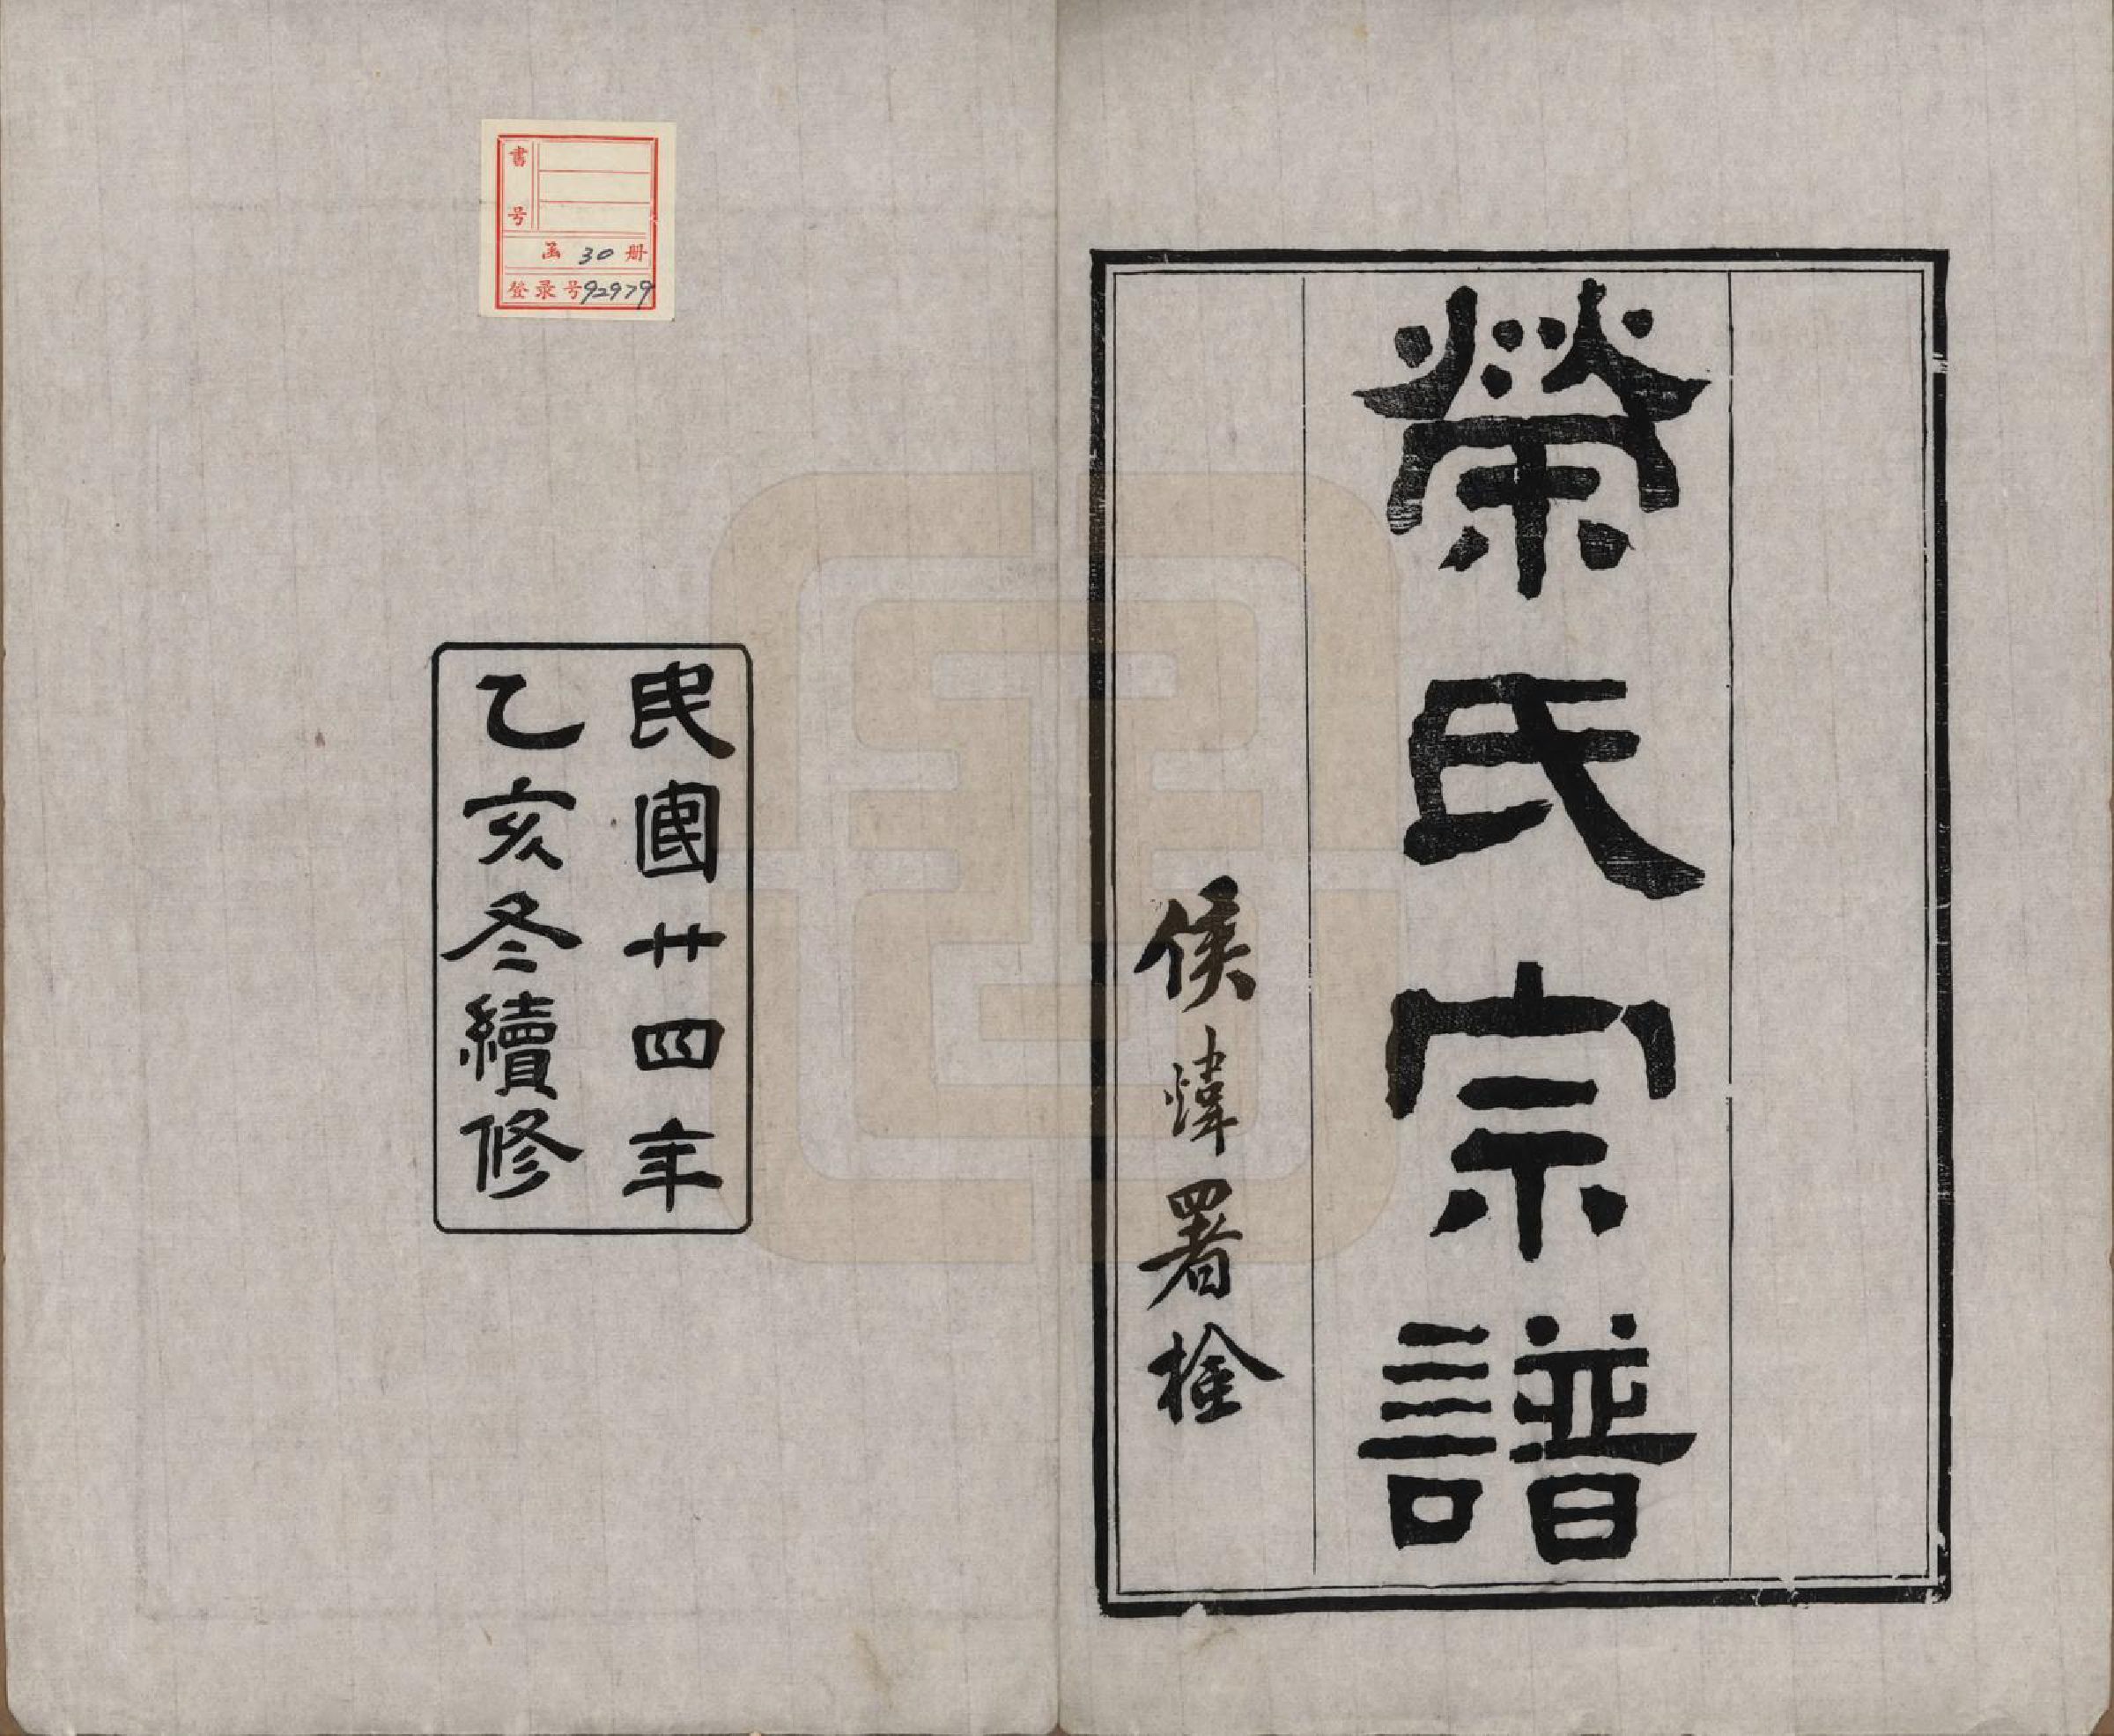 榮氏宗譜
侯煒署檢
民國廿四年
乙亥冬續修
書号
函 30 册
登录号92979